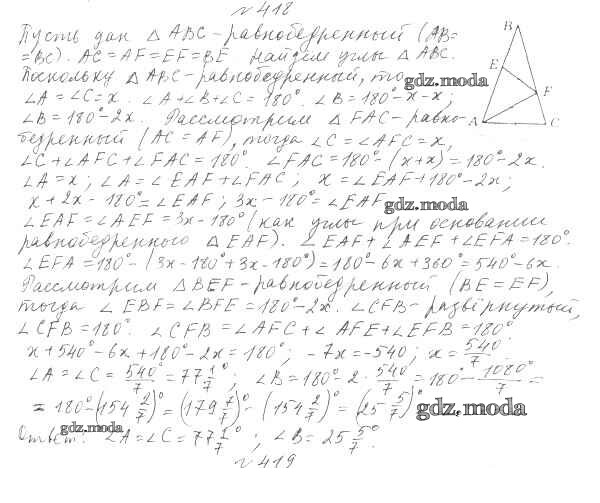 № 418
Пусть дан △ ABC - равнобедренный (AB=
= BC). AC = AF = EF = BE Найдем углы △ ABC.
Поскольку △ ABC - равнобедренный, то
gdz.moda
∠A = ∠C = x. ∠A + ∠B + ∠C = 180°. ∠B = 180° - x - x;
∠B = 180° - 2x. Рассмотрим △ FAC - равно-
бедренный (AC = AF), тогда ∠C = ∠AFC = x,
∠C + ∠AFC + ∠FAC = 180°. ∠FAC = 180° - (x+x) = 180° - 2x.
∠A = x; ∠A = ∠EAF + ∠FAC; x = ∠EAF + 180° - 2x;
x + 2x - 180° = ∠EAF; 3x - 180° = ∠EAF
gdz.moda
∠EAF = ∠AEF = 3x - 180° (как углы при основании
равнобедренного △ EAF). ∠EAF + ∠AEF + ∠EFA = 180°.
∠EFA = 180° - (3x - 180° + 3x - 180°) = 180° - 6x + 360° = 540° - 6x.
Рассмотрим △ BEF - равнобедренный (BE = EF),
тогда ∠EBF = ∠BFE = 180° - 2x. ∠CFB - развёрнутый,
∠CFB = 180°. ∠CFB = ∠AFC + ∠AFE + ∠EFB = 180°
x + 540° - 6x + 180° - 2x = 180°; -7x = -540; x = 540°/7.
∠A = ∠C = 540°/7 = 77 1/7°; ∠B = 180° - 2 · 540°/7 = 180° - 1080°/7 =
= 180° - (154 2/7)° = (179 7/7)° - (154 2/7)° = (25 5/7)°
gdz.moda
Ответ: ∠A = ∠C = 77 1/7°; ∠B = 25 5/7°.
gdz.moda
№ 419
B
E
F
A
C